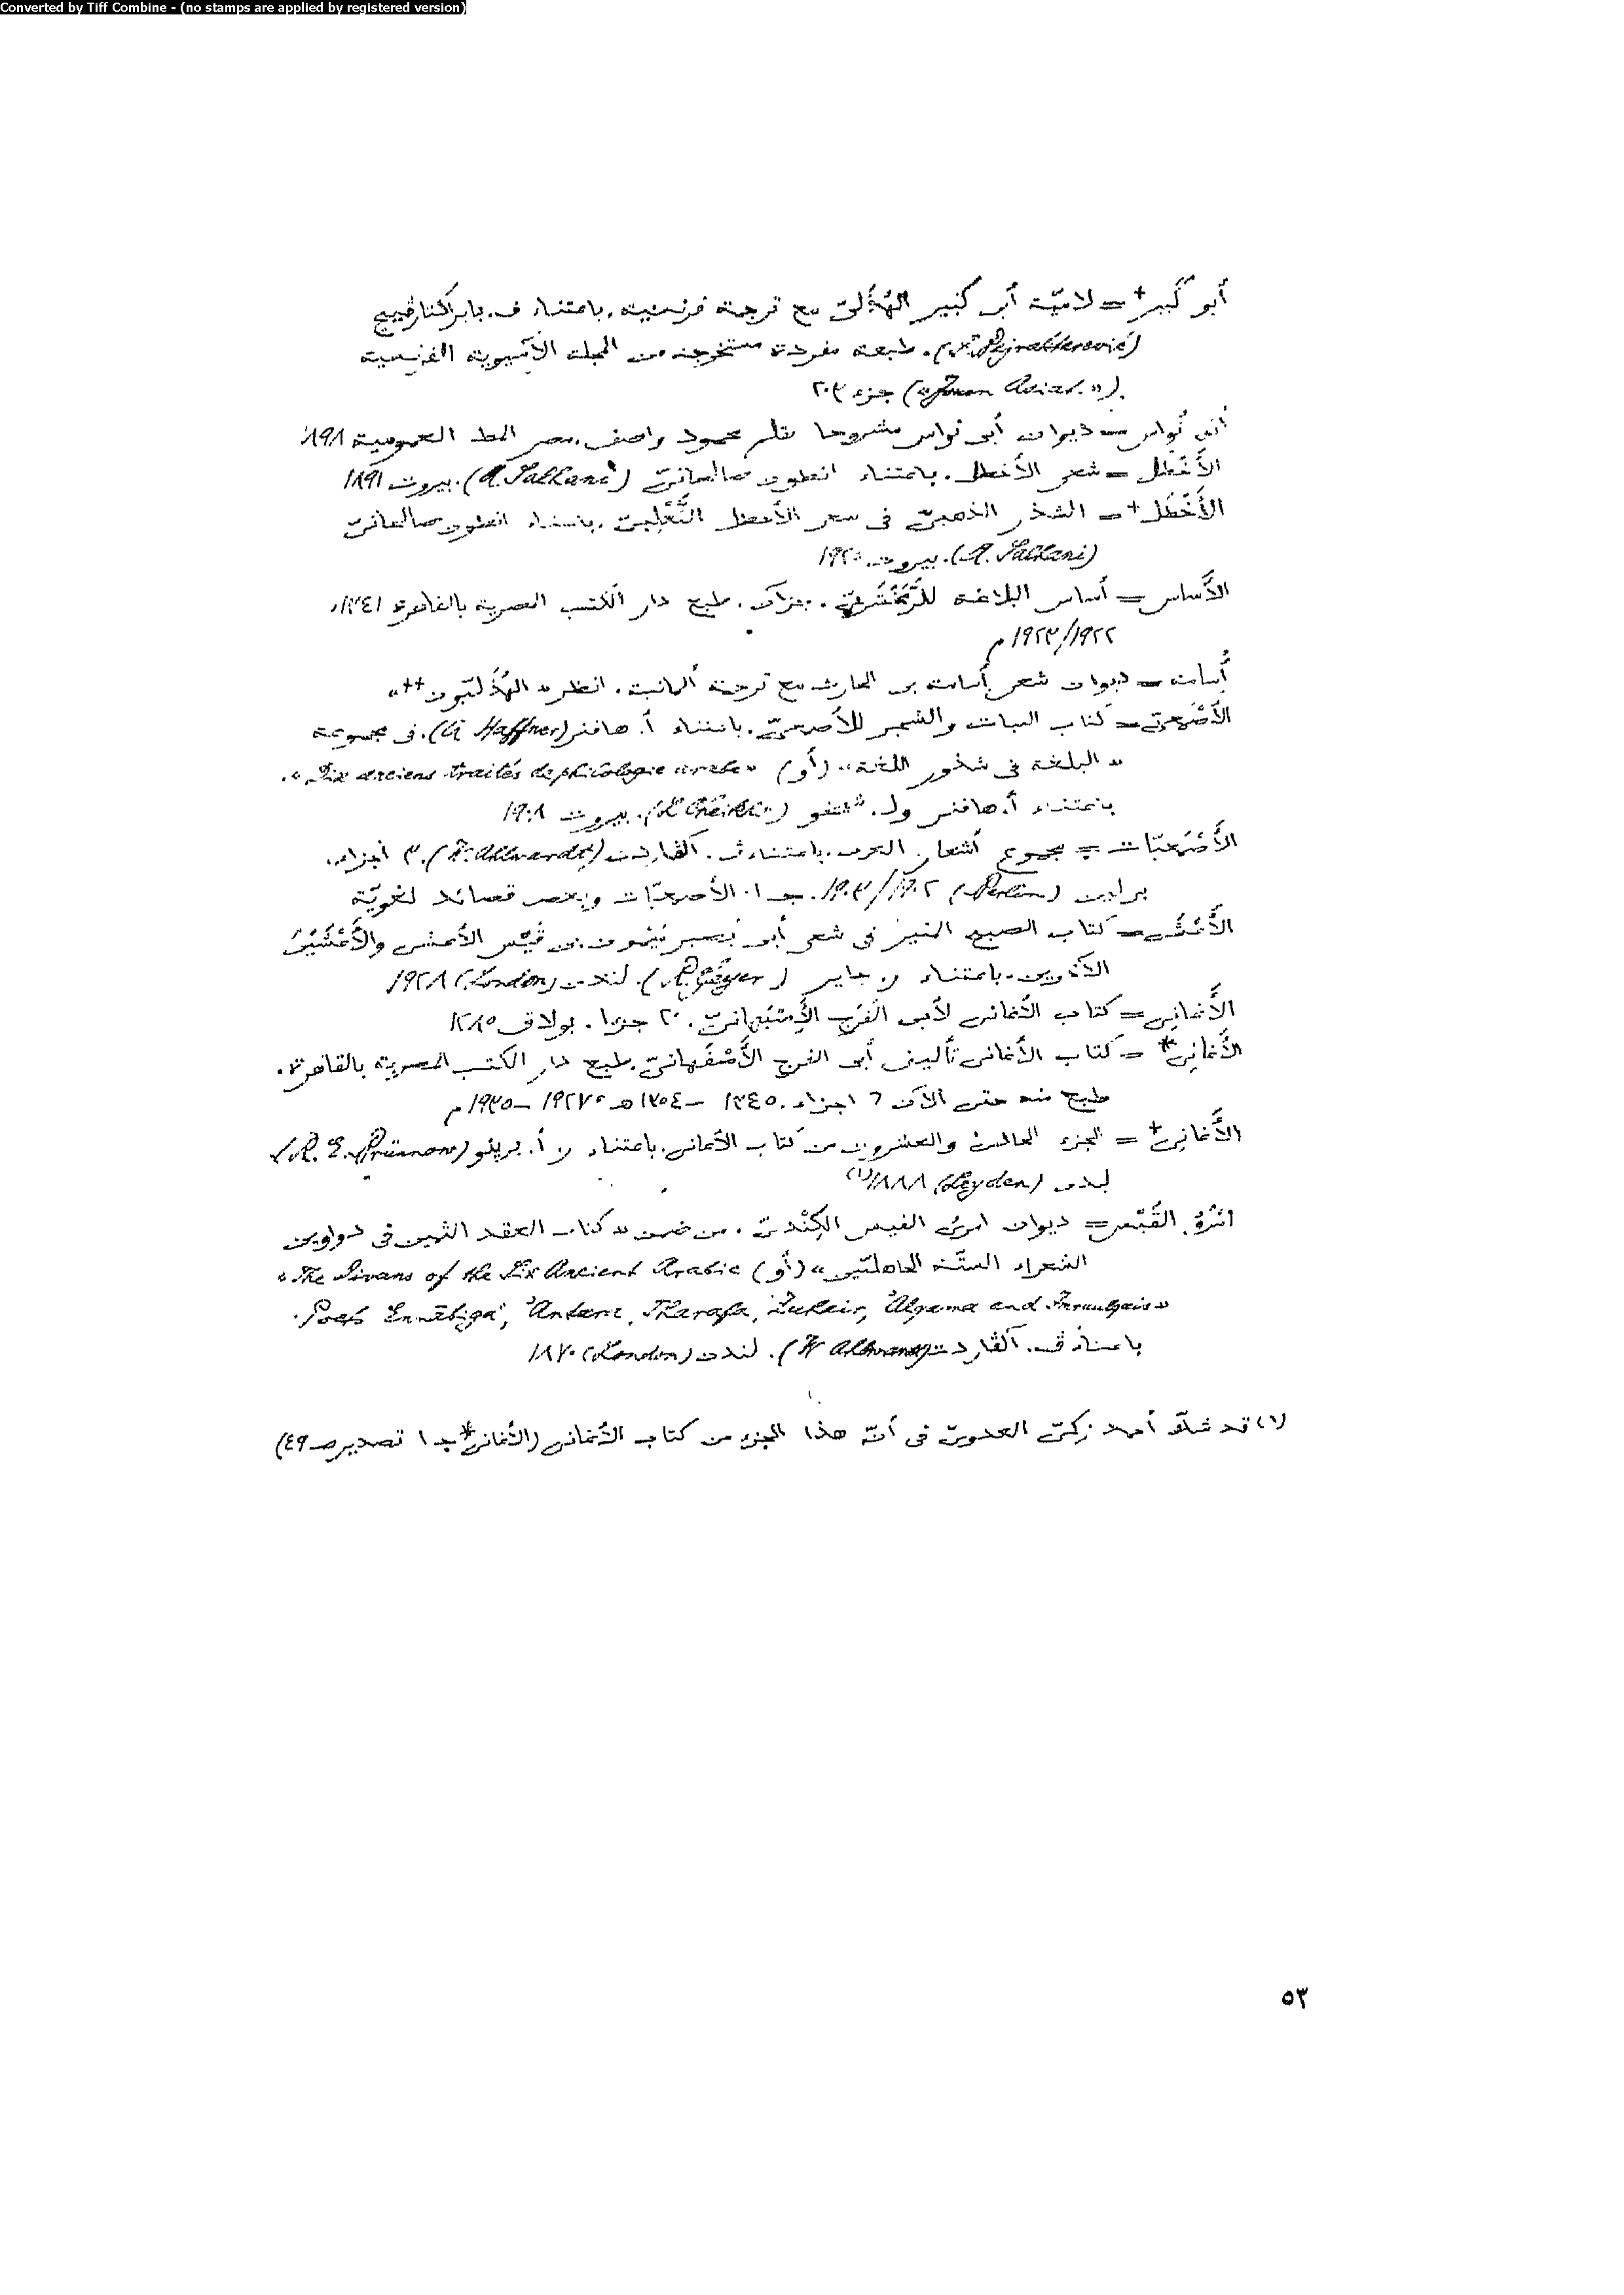 Converted by Tiff Combine - (no stamps are applied by registered version)
أبو كَبير+ = لاميّة أبى كبير الهُذَلىّ مع ترجمة فرنسية. باعتناء ف. بايراكتارڤييچ
(F. Bajraktarević). طبعة مفردة مستخرجة من المجلة الآسيوية الفرنسية
(« Journ Asiat. ») جزء ٢٠٣.
أبو نُواس = ديوان أبى نواس مشروحا بقلم محمود واصف. مصر المط العمومية ١٨٩٨
الأَخْطَل = شعر الأخطل. باعتناء انطون صالحانىّ (A. Salhani). بيروت ١٨٩١
الأَخْطَل+ = الشذر الذهبىّ فى شعر الأخطل التَّغْلِبىّ. باعتناء انطون صالحانىّ
(A. Salhani). بيروت ١٩٢٥
الأَساس = أساس البلاغة للزَّمَخْشَرىّ. جزآن. طبع دار الكتب المصرية بالقاهرة ١٣٤١/
١٩٢٢/١٩٢٣ م
أُسامة = ديوان شعر أسامة بن الحارث مع ترجمة ألمانية. انظر « الهُذَليّون++ »
الأَصْمَعىّ = كتاب النبات والشجر للأصمعىّ. باعتناء أ. هافنر (A. Haffner). فى مجموعة
« البلغة فى شذور اللغة » (أو) « Dix anciens traités de philologie arabe ».
باعتناء أ. هافنر ول. شيخو (L. Cheikho). بيروت ١٩٠٨
الأَصْمَعيّات = مجموع أشعار العرب. باعتناء ڤ. آلڤاردت (W. Ahlwardt). ٣ أجزاء.
برلين (Berlin) ١٩٠٢/١٩٠٣. جـ ١: الأصمعيّات وبعض قصائد لغويّة
الأَعْشَى = كتاب الصبح المنير فى شعر أبى بَصير مَيْمون بن قَيْس الأعشى والأَعْشَيْنَ
الآخرين. باعتناء ر. جاير (R. Geyer). لندن (London) ١٩٢٨
الأَغانِى = كتاب الأغانى لأبى الفَرَج الأَصْبَهانىّ. ٢٠ جزءا. بولاق ١٢٨٥
الأَغانِى* = كتاب الأغانى تأليف أبى الفرج الأَصْفَهانىّ. طبع دار الكتب المصرية بالقاهرة.
طبع منه حتى الآن ٦ اجزاء. ١٣٤٥ – ١٣٥٤ هـ = ١٩٢٧ – ١٩٣٥ م
الأَغانِى+ = الجزء الحادى والعشرون من كتاب الأغانى. باعتناء ر. أ. برينو (R. E. Brünnow)
ليدن (Leyden) ١٨٨٨(١)
امْرُؤ القَيْس = ديوان امرئ القيس الكِنْدىّ. من ضمن « كتاب العقد الثمين فى دواوين
الشعراء الستّة الجاهليّين » (أو) « The Divans of the Six Ancient Arabic
Poets Ennābiga, 'Antara, Tharafa, Zuhair, 'Alqama and Imruulqais ».
باعتناء ڤ. آلڤاردت (W Ahlwardt). لندن (London) ١٨٧٠
(١) قد شكّ أحمد زكىّ العدوىّ فى أنّ هذا الجزء من كتاب الأغانى (الأغانى* جـ ١ تصدير صـ ٤٩)
٥٣